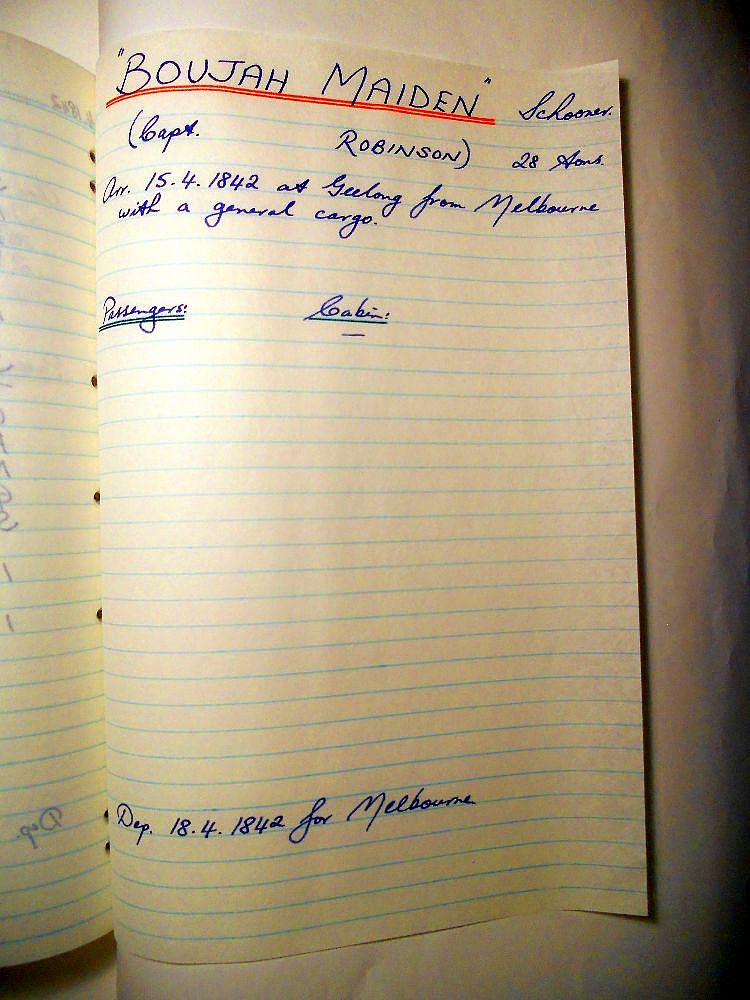 "BOUJAH MAIDEN" Schooner.
(Capt. ROBINSON) 28 tons.
Arr. 15.4.1842 at Geelong from Melbourne
with a general cargo.
Passengers: Cabin:
—
Dep. 18.4.1842 for Melbourne